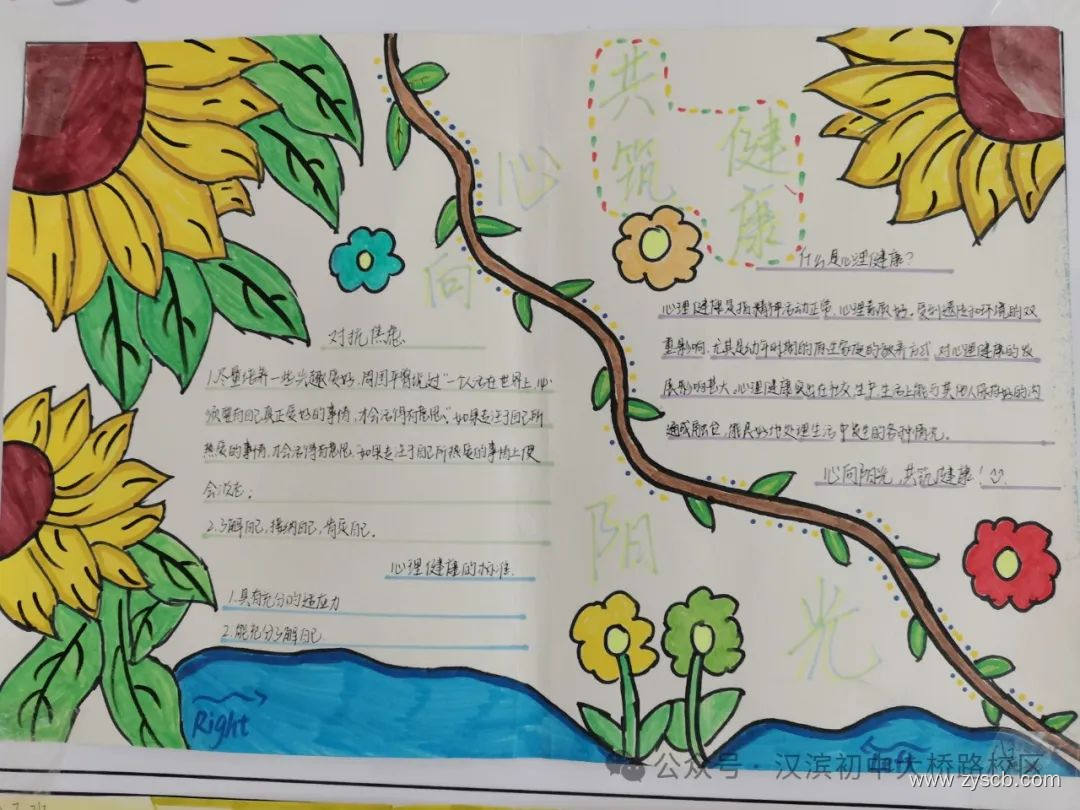 共筑
健康
心向阳光
对抗焦虑
1.尽量培养一些兴趣爱好,周国平曾说过"一个人活在世界上,必
须要有自己真正爱好的事情,才会活得有意思。"如果专注于自己所
热爱的事情,才会活得有意思,如果专注于自己所热爱的事情上便
会淡忘。
2.了解自己,接纳自己,肯定自己。
心理健康的标准
1.具有充分的适应力
2.能充分了解自己
什么是心理健康?
心理健康是指精神活动正常、心理素质好。受到遗传和环境的双
重影响,尤其是幼年时期的原生家庭的教养方式,对心理健康的发
展影响甚大。心理健康突出在社交、生产、生活上能与其他人保持好的沟
通或配合,能良好地处理生活中发生的各种情况。
心向阳光,共筑健康!
Right
Left
公众号·汉滨初中大桥路校区
www.zyscb.com